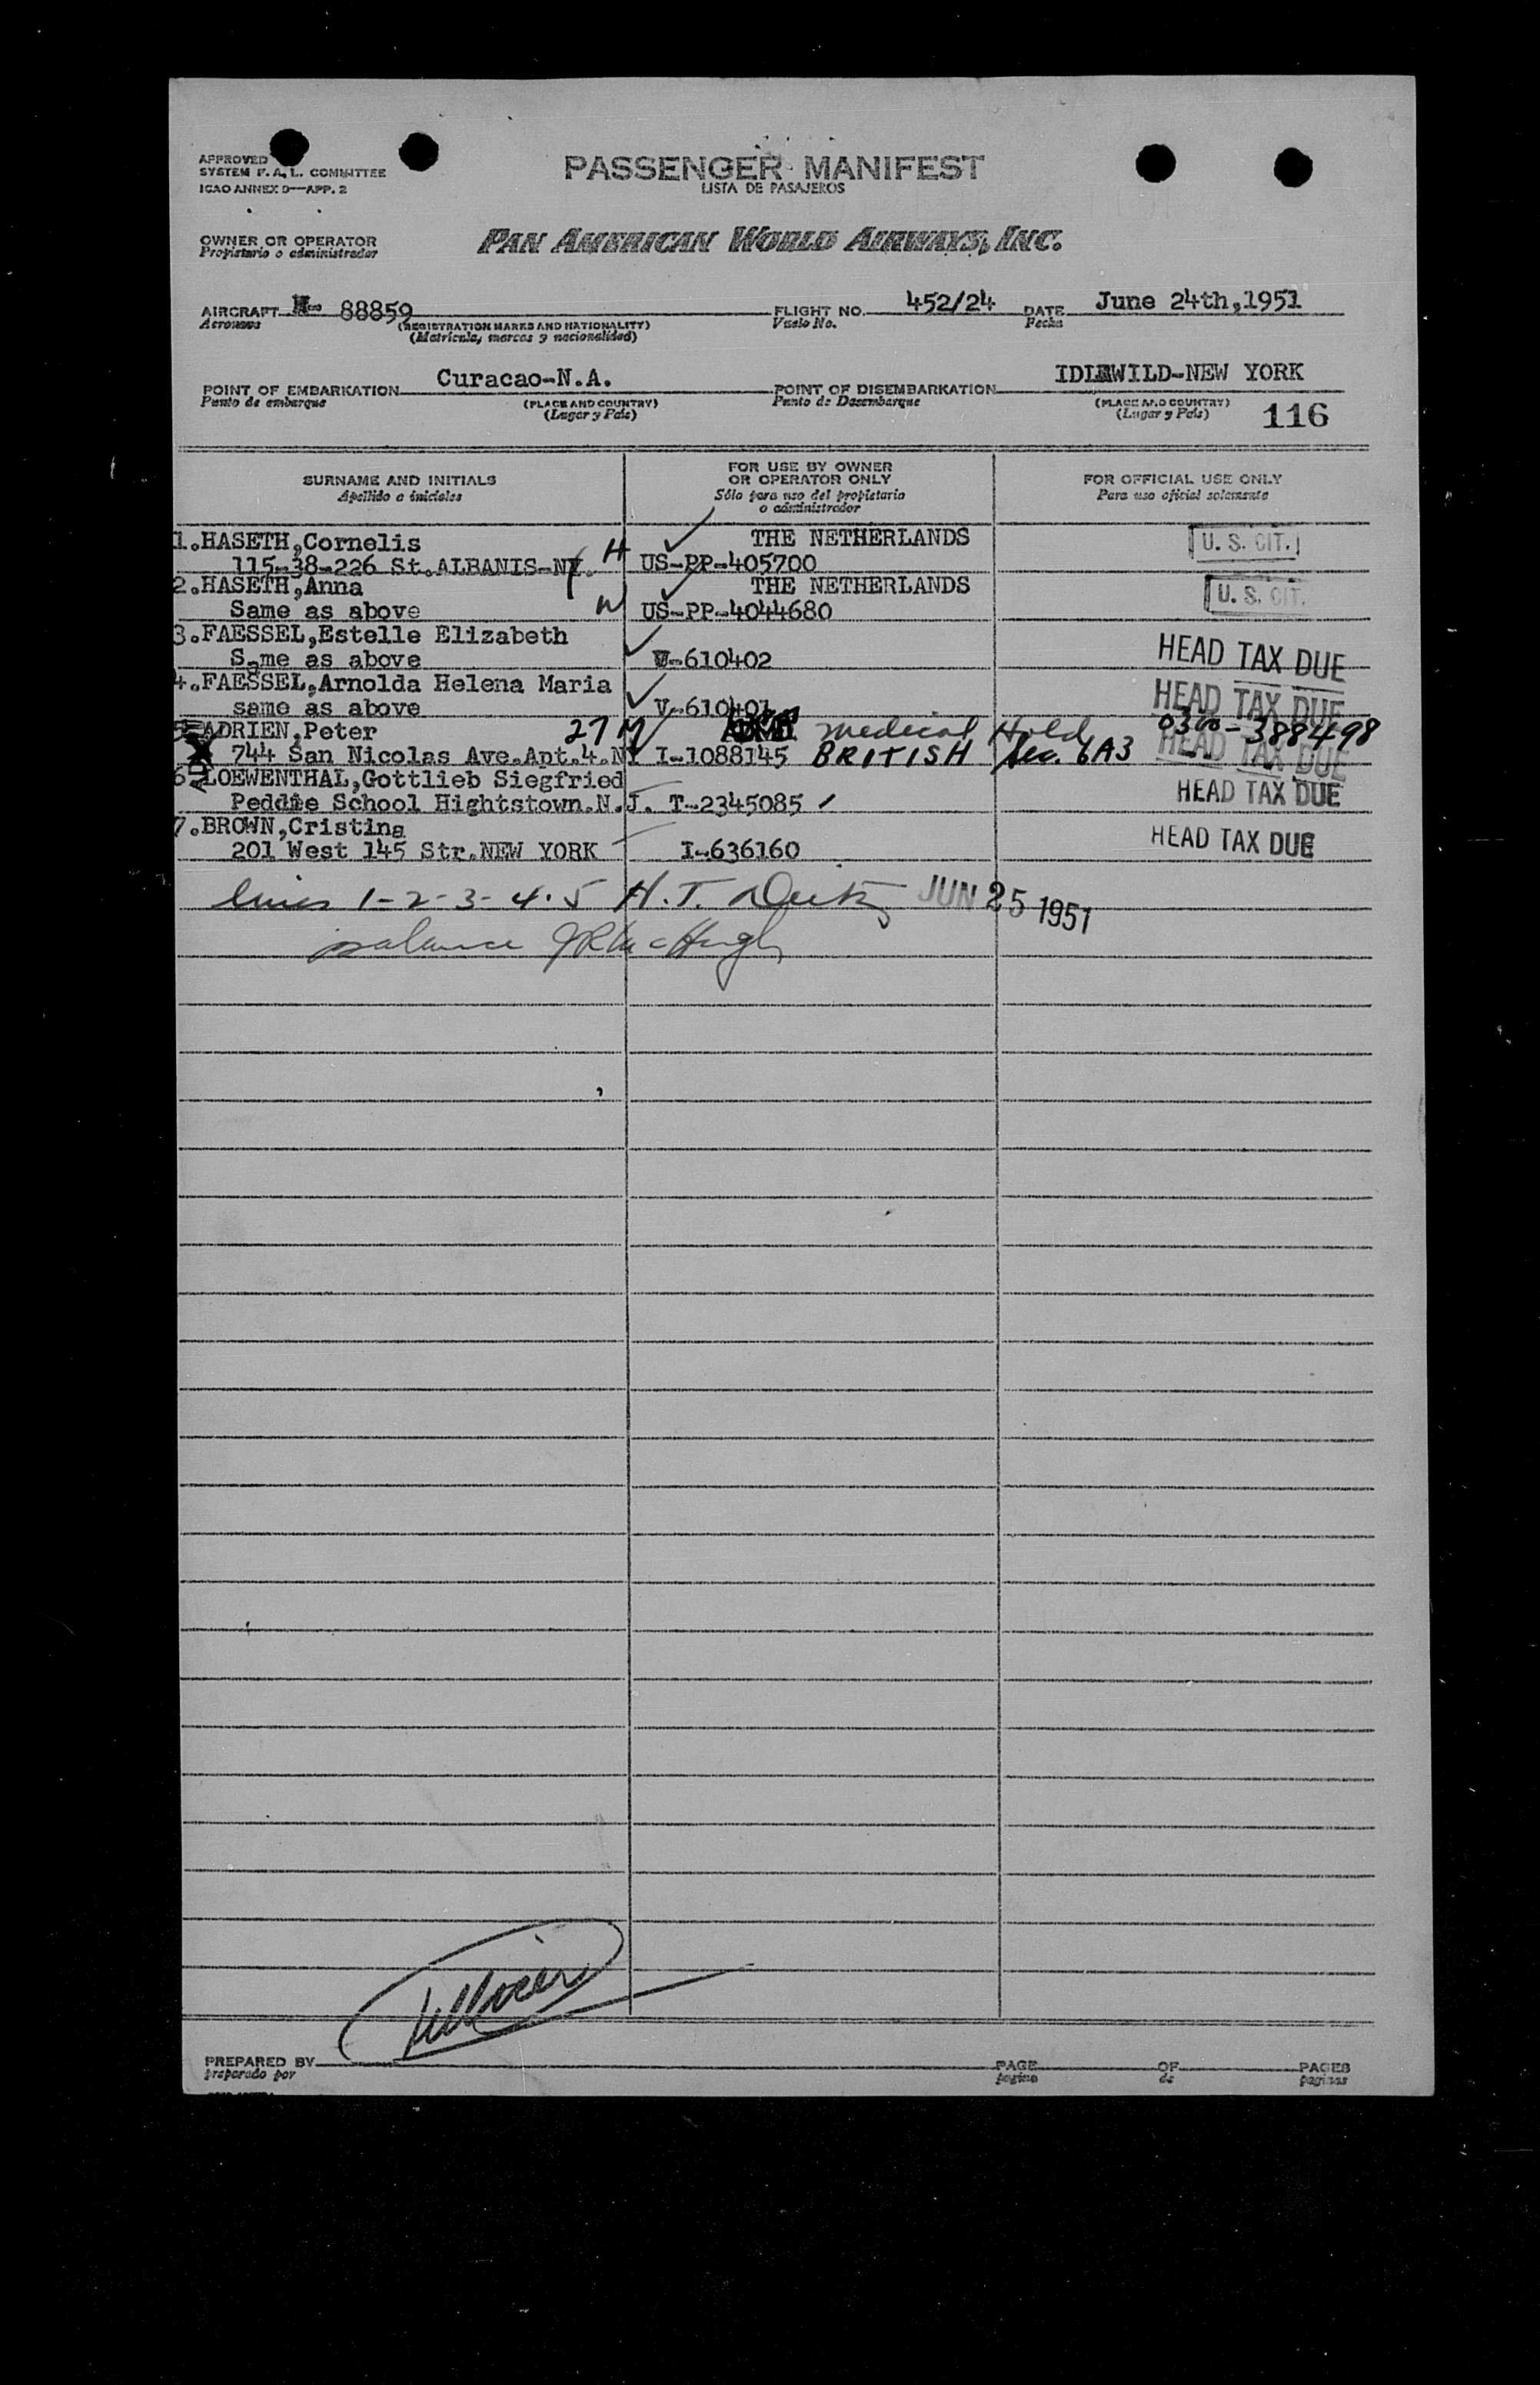 APPROVED
SYSTEM F. A. L. COMMITTEE
ICAO ANNEX 9—APP. 2
PASSENGER MANIFEST
LISTA DE PASAJEROS
OWNER OR OPERATOR
Propietario o administrador
PAN AMERICAN WORLD AIRWAYS, INC.
AIRCRAFT N- 88859
Aeronave
(REGISTRATION MARKS AND NATIONALITY)
(Matrícula, marcas y nacionalidad)
FLIGHT NO. 452/24
Vuelo No.
DATE June 24th,1951
Fecha
POINT OF EMBARKATION Curacao-N.A.
Punto de embarque
(PLACE AND COUNTRY)
(Lugar y País)
POINT OF DISEMBARKATION IDLEWILD-NEW YORK
Punto de Desembarque
(PLACE AND COUNTRY)
(Lugar y País)
116
SURNAME AND INITIALS
Apellido e iniciales
FOR USE BY OWNER
OR OPERATOR ONLY
Sólo para uso del propietario
o administrador
FOR OFFICIAL USE ONLY
Para uso oficial solamente
1.HASETH,Cornelis THE NETHERLANDS U. S. CIT.
115-38-226 St.ALBANIS-NY. H US-PP-405700
2.HASETH,Anna THE NETHERLANDS U. S. CIT.
Same as above W US-PP-4044680
3.FAESSEL,Estelle Elizabeth HEAD TAX DUE
Same as above V-610402
4.FAESSEL,Arnolda Helena Maria HEAD TAX DUE
same as above V-610401
5.ADRIEN,Peter 27 M medical Hold 0300-388498
744 San Nicolas Ave.Apt.4.NY I-1088145 BRITISH Sec. 6A3 HEAD TAX DUE
6.LOEWENTHAL,Gottlieb Siegfried
Peddie School Hightstown.N.J. T-2345085 HEAD TAX DUE
7.BROWN,Cristina HEAD TAX DUE
201 West 145 Str.NEW YORK I-636160
lines 1-2-3-4-5 H.T. JUN 25 1951
balance JR McHugh
PREPARED BY
preparado por
PAGE OF PAGES
pagina de paginas